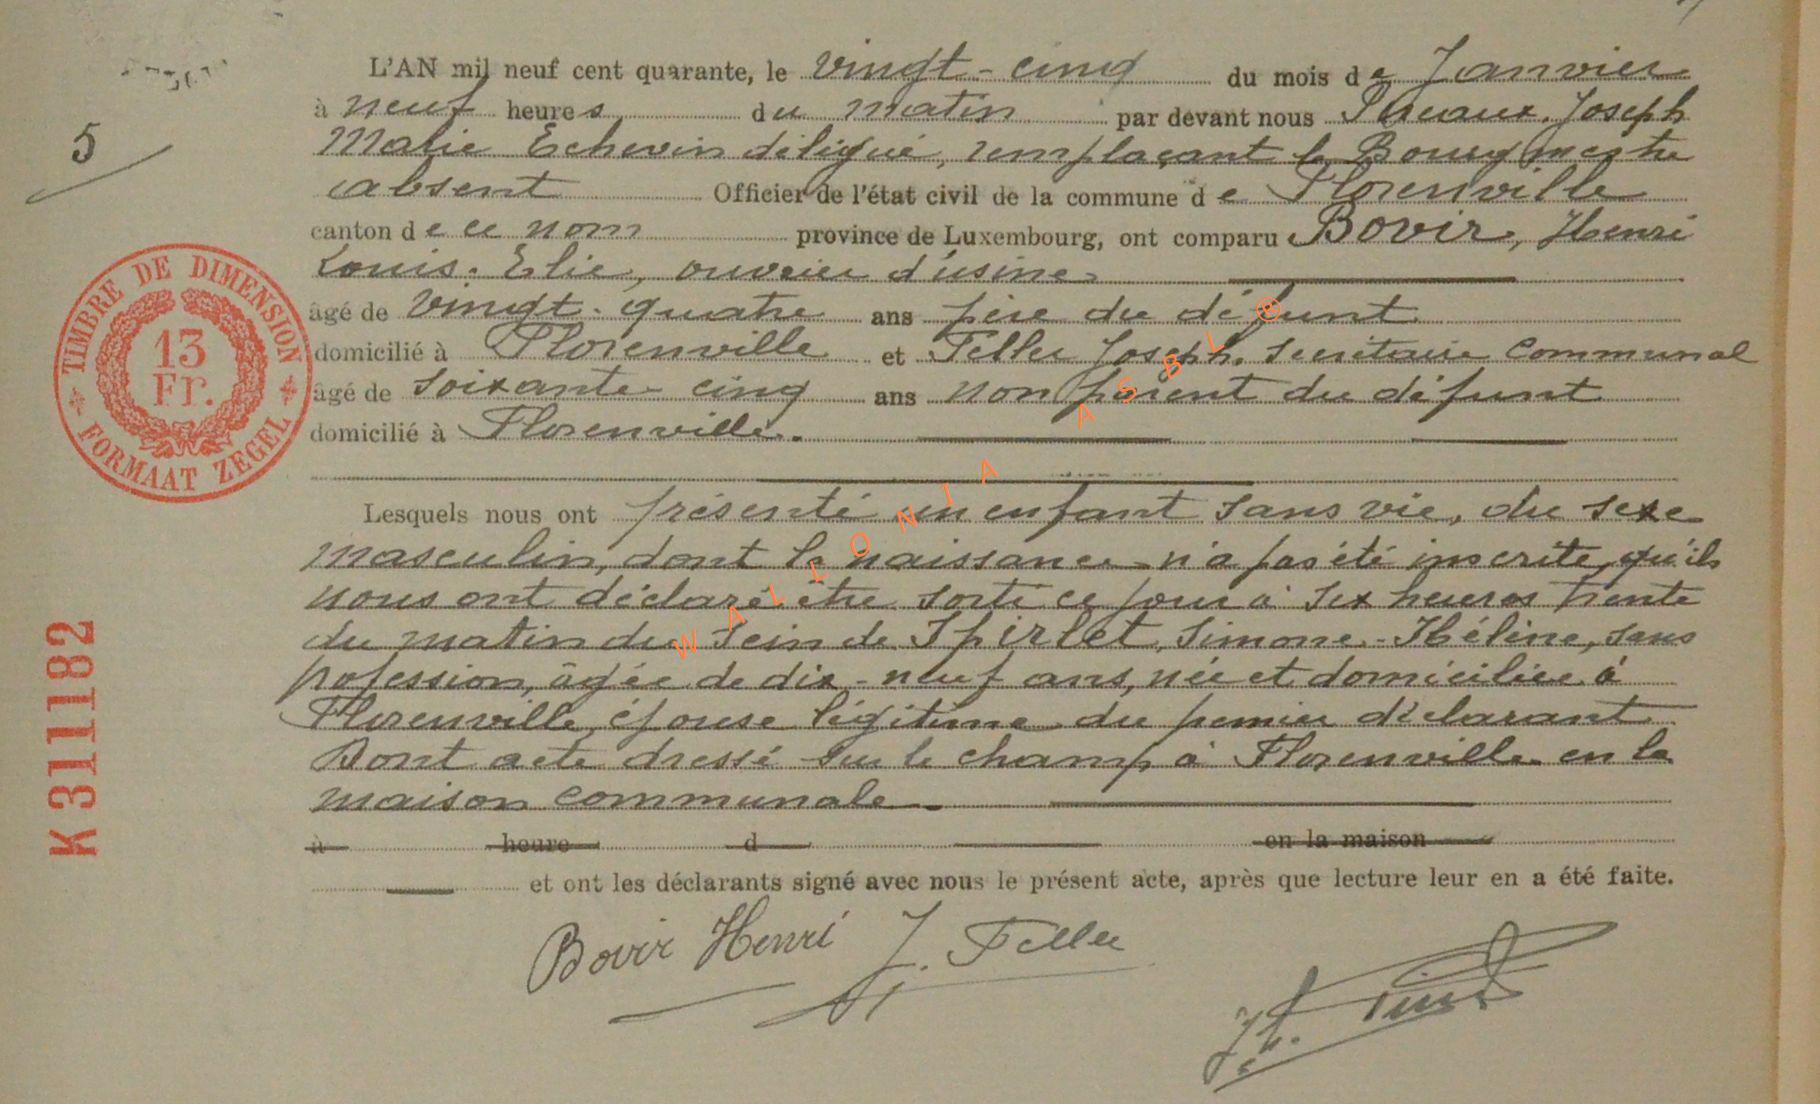 L'AN mil neuf cent quarante, le vingt-cinq du mois de Janvier
5
à neuf heures du matin par devant nous Joseph
Marie Echevin délégué, remplaçant le Bourgmestre
absent Officier de l'état civil de la commune de Florenville
canton de ce nom province de Luxembourg, ont comparu Bovir, Henri
Louis-Elie, ouvrier d'usine
âgé de vingt-quatre ans père du défunt
domicilié à Florenville et Feller Joseph, secrétaire communal
âgé de soixante-cinq ans non parent du défunt
domicilié à Florenville.
TIMBRE DE DIMENSION
13
Fr.
FORMAAT ZEGEL
Lesquels nous ont présenté un enfant sans vie, du sexe
masculin, dont la naissance n'a pas été inscrite, qu'ils
nous ont déclaré être sorti ce jour à six heures trente
du matin du sein de Spirlet, Simone-Hélène, sans
profession, âgée de dix-neuf ans, née et domiciliée à
Florenville, épouse légitime du premier déclarant
Dont acte dressé sur le champ à Florenville en la
maison communale
à heure d en la maison
et ont les déclarants signé avec nous le présent acte, après que lecture leur en a été faite.
K311182
Bovir Henri J. Feller
WALLONIA ASBL ®